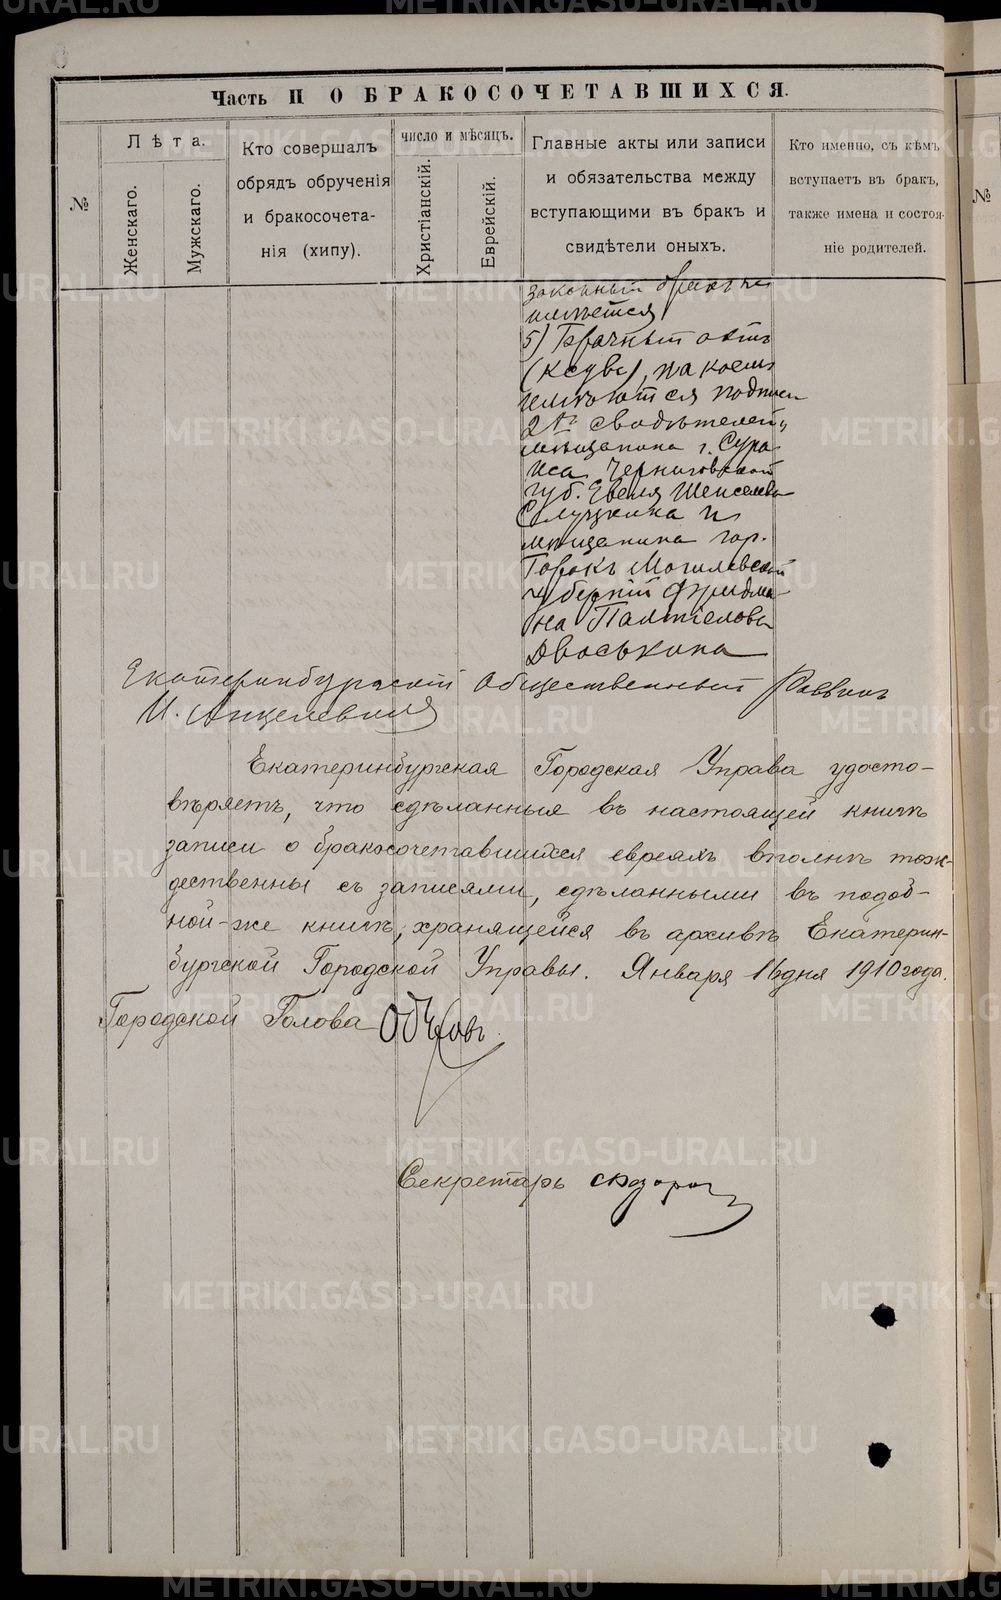 Часть II О БРАКОСОЧЕТАВШИХСЯ.
№
Лѣта.
Женскаго.
Мужскаго.
Кто совершалъ
обрядъ обрученія
и бракосочета-
нія (хипу).
число и мѣсяцъ.
Христіанскій.
Еврейскій.
Главные акты или записи
и обязательства между
вступающими въ бракъ и
свидѣтели оныхъ.
Кто именно, съ кѣмъ
вступаетъ въ бракъ,
также имена и состоя-
ніе родителей.
№
законный бракъ не
имѣется
5) Брачный актъ
(ксуве), на коемъ
имѣются подписи
2хъ свидѣтелей,
мѣщанина г. Сура
жа Черниговской
губ. Евеля Шенселева
Слуцкина и
мѣщанина гор.
Горокъ Могилевской
губерніи Фридма-
на Палтіелова
Двоськина
Екатеринбургскій Общественный Раввинъ
И. Анцелевичъ
Екатеринбургская Городская Управа удосто-
вѣряетъ, что сдѣланныя въ настоящей книгѣ
записи о бракосочетавшихся евреяхъ вполнѣ тож-
дественны съ записями, сдѣланными въ подоб-
ной-же книгѣ, хранящейся въ архивѣ Екатерин-
бургской Городской Управы. Января 16 дня 1910 года.
Городской Голова Обуховъ
Секретарь
METRIKI.GASO-URAL.RU